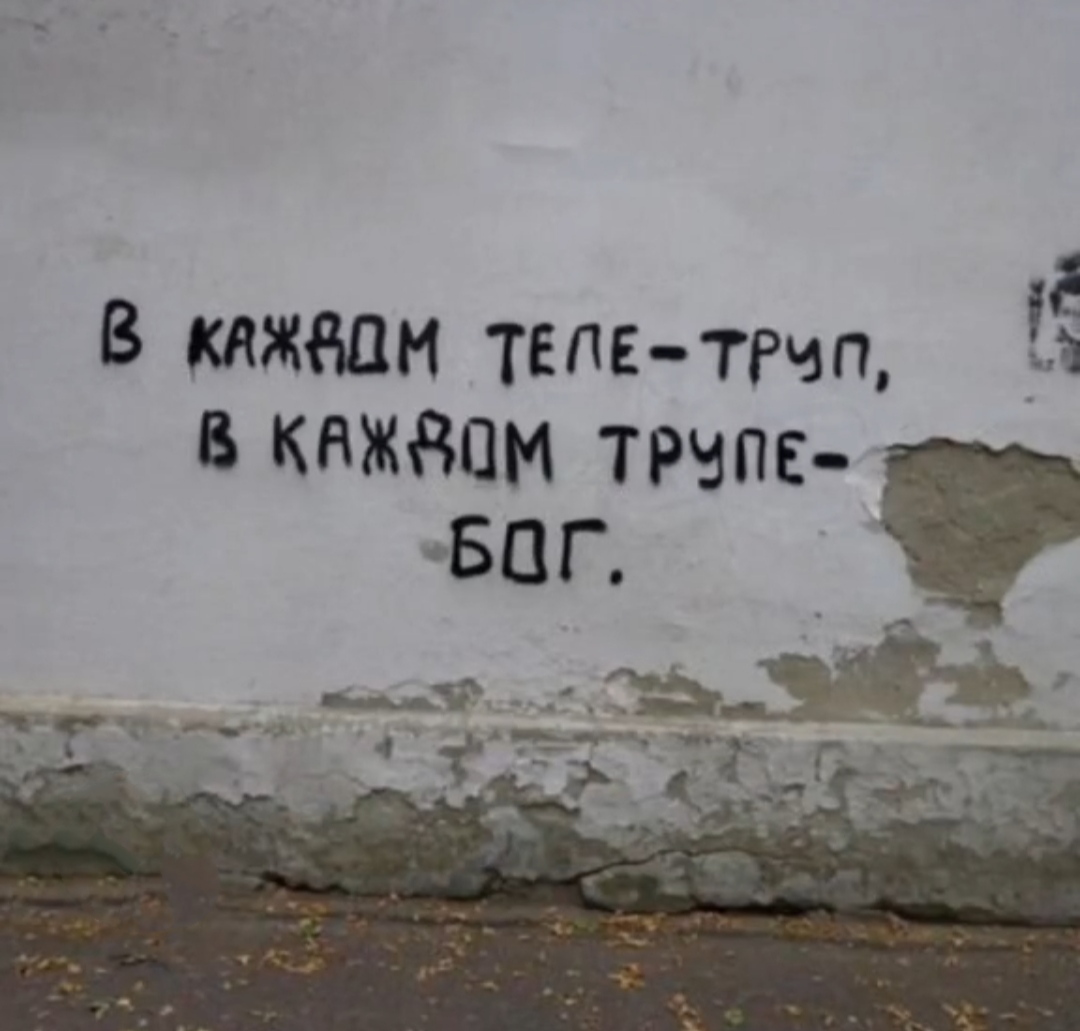 В КАЖДОМ ТЕЛЕ-ТРУП,
В КАЖДОМ ТРУПЕ-
БОГ.